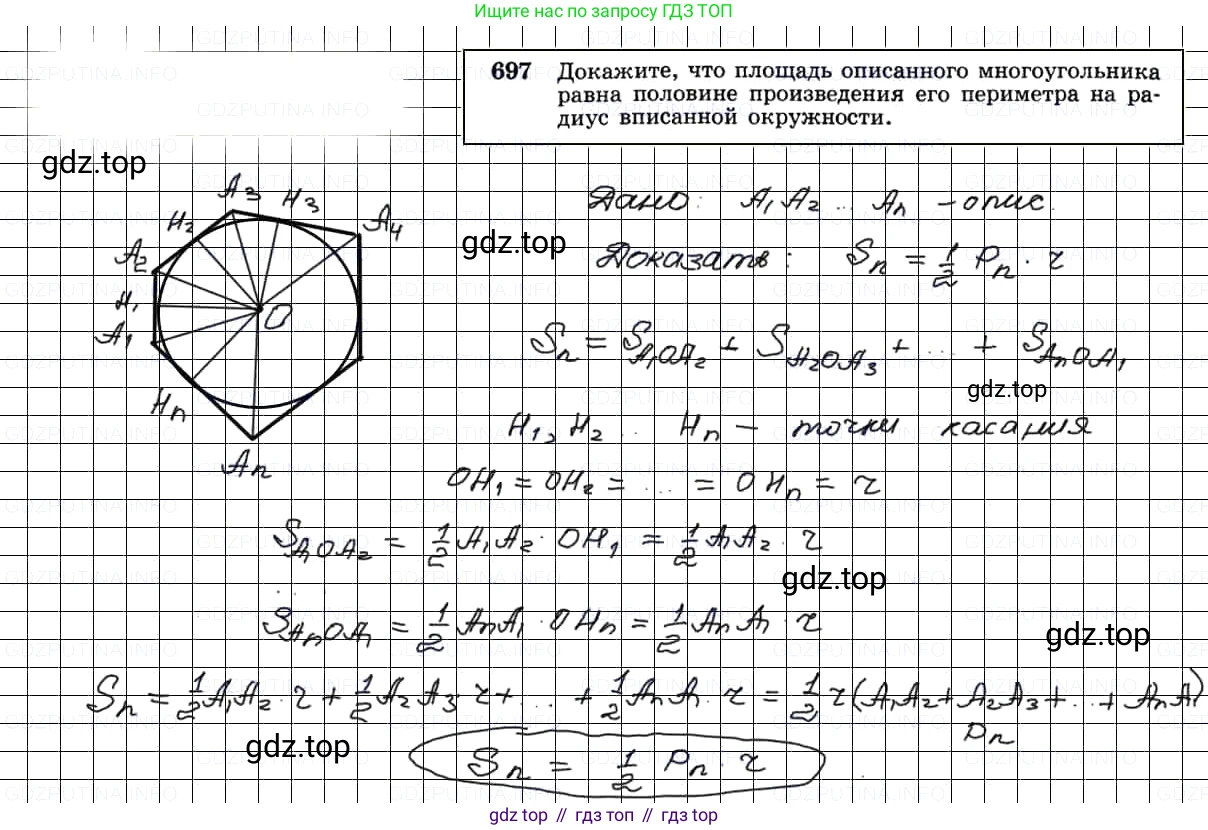 Ищите нас по запросу ГДЗ ТОП
697 Докажите, что площадь описанного многоугольника
равна половине произведения его периметра на ра-
диус вписанной окружности.
gdz.top
A₃ H₃
H₂ A₄
A₂
H₁ O
A₁
Hn
An
Дано: A₁A₂ ... An - опис.
gdz.top
Доказать: Sn = 1/2 Pn · r
Sn = S A₁OA₂ + S A₂OA₃ + ... + S AnOA₁
gdz.top
H₁, H₂ ... Hn - точки касания
OH₁ = OH₂ = ... = OHn = r
S A₁OA₂ = 1/2 A₁A₂ · OH₁ = 1/2 A₁A₂ · r
gdz.top
S AnOA₁ = 1/2 AnA₁ · OHn = 1/2 AnA₁ · r
gdz.top
Sn = 1/2 A₁A₂ · r + 1/2 A₂A₃ r + ... + 1/2 AnA₁ · r = 1/2 r (A₁A₂ + A₂A₃ + ... + AnA₁)
Pn
gdz.top
Sn = 1/2 Pn · r
gdz.top // гдз топ // gdz.top